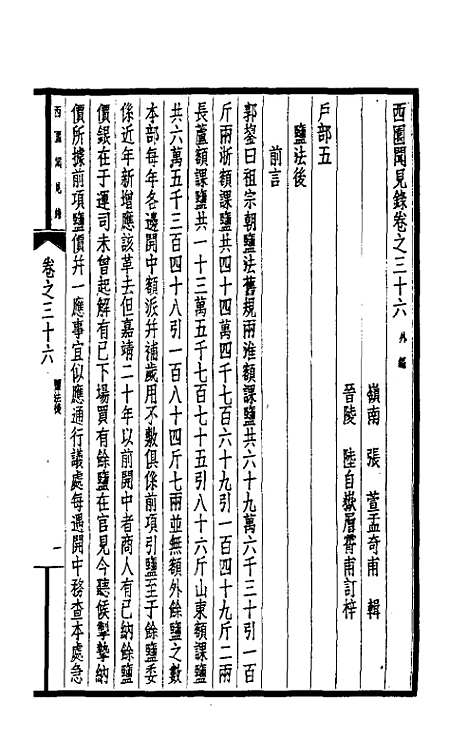 西園聞見錄卷之三十六 外編
嶺南 張 萱孟奇甫 輯
晉陵 陸自嶽層霄甫訂梓
戶部五
鹽法後
前言
郭鋆曰祖宗朝鹽法舊規兩淮額課鹽共六十九萬六千三十引一百
斤兩浙額課鹽共四十四萬四千七百六十九引一百四十九斤二兩
長蘆額課鹽共一十三萬五千七百七十五引八十六斤山東額課鹽
共六萬五千三百四十八引一百八十四斤七兩並無額外餘鹽之數
本部每年各邊開中額派并補歲用不敷俱係前項引鹽至于餘鹽委
係近年新增應該革去但嘉靖二十年以前開中者商人有已納餘鹽
價銀在于運司未曾起解有已下場買有餘鹽在官見今聽候掣摯納
價所據前項鹽價并一應事宜似應通行議處每遇開中務查本處急
西園聞見錄
卷之三十六
鹽法後
一